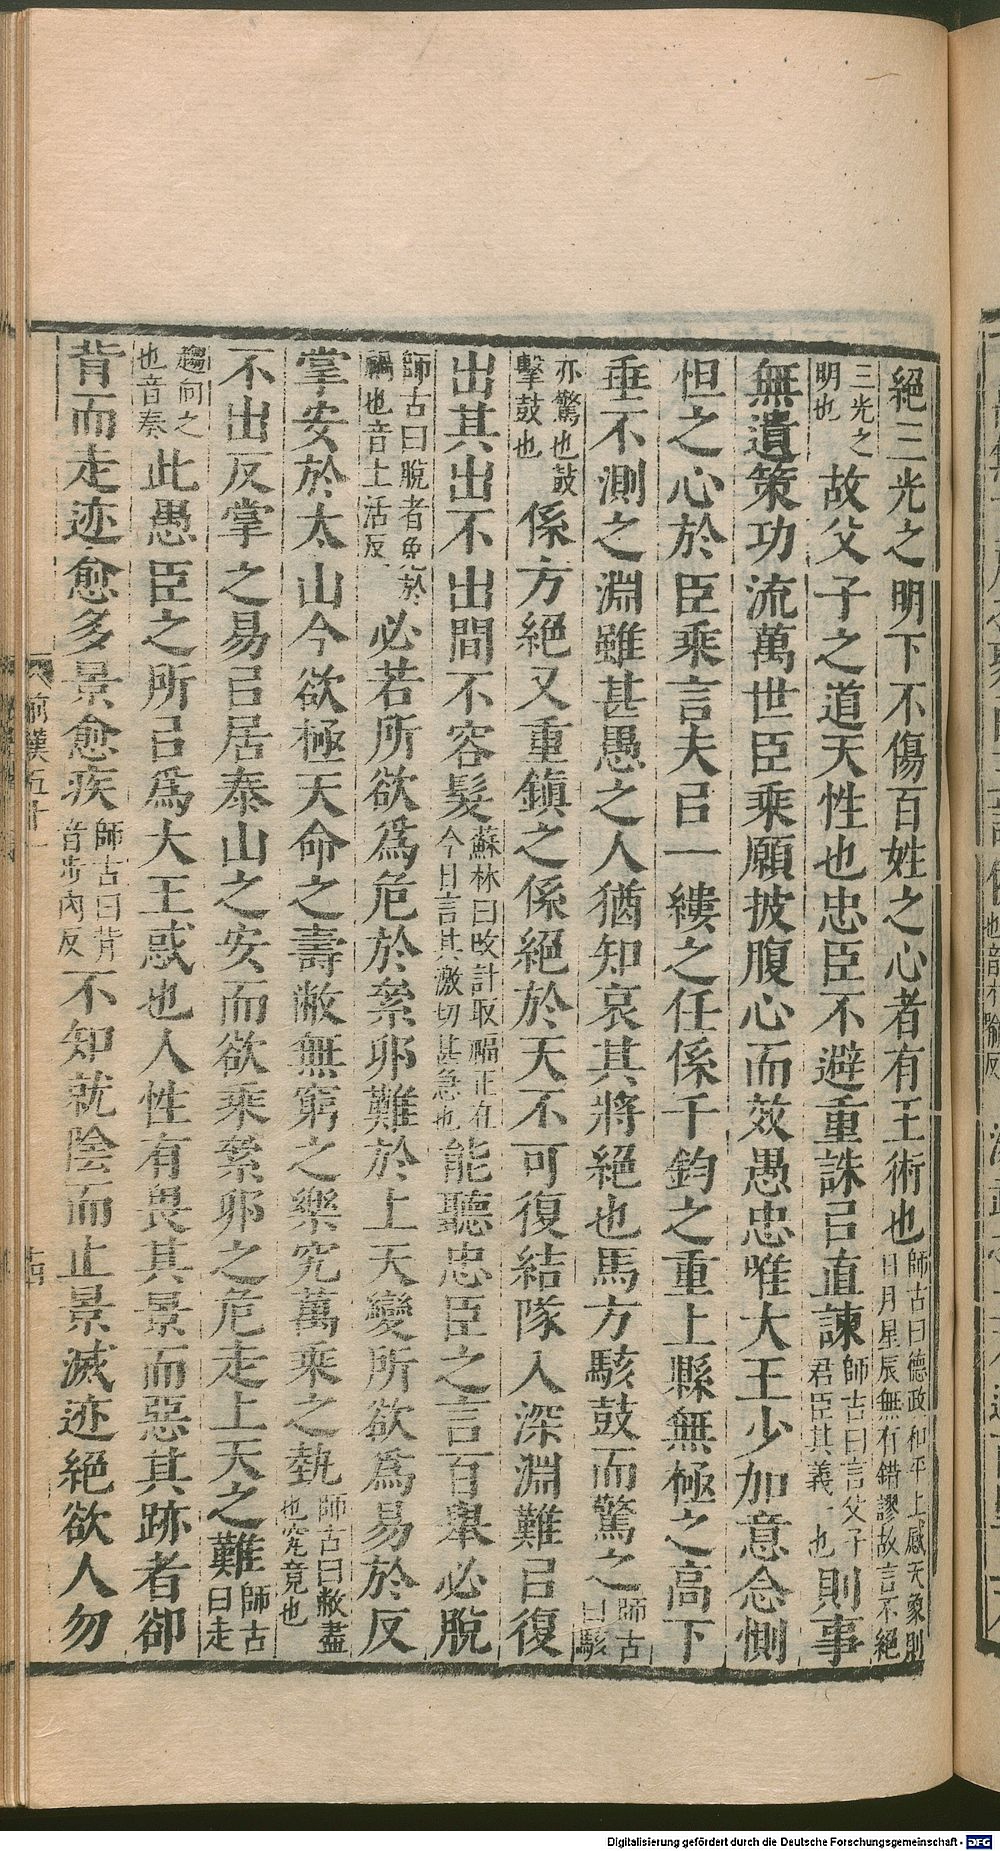 絕三光之明下不傷百姓之心者有王術也師古曰德政和平上感天象則日月星辰無有錯謬故言不絕
三光之明也故父子之道天性也忠臣不避重誅㠯直諫師古曰言父子君臣其義一也則事
無遺策功流萬世臣乘願披腹心而效愚忠唯大王少加意念惻
怛之心於臣乘言夫㠯一縷之任係千鈞之重上縣無極之高下
垂不測之淵雖甚愚之人猶知哀其將絕也馬方駭鼓而驚之師古曰駭
亦驚也鼓擊鼓也係方絕又重鎮之係絕於天不可復結隊入深淵難㠯復
出其出不出間不容髮蘇林曰改計取福正在今日言其激切甚急也能聽忠臣之言百舉必脫
師古曰脫者免於禍也音土活反必若所欲爲危於絫卵難於上天變所欲爲易於反
掌安於太山今欲極天命之壽敝無窮之樂究萬乘之埶師古曰敝盡也究竟也
不出反掌之易㠯居泰山之安而欲乘絫卵之危走上天之難師古曰走
趨向之也音奏此愚臣之所㠯爲大王惑也人性有畏其景而惡其跡者卻
背而走迹愈多景愈疾師古曰背音步內反不知就陰而止景滅迹絕欲人勿
前漢五十一
十四
Digitalisierung gefördert durch die Deutsche Forschungsgemeinschaft - DFG